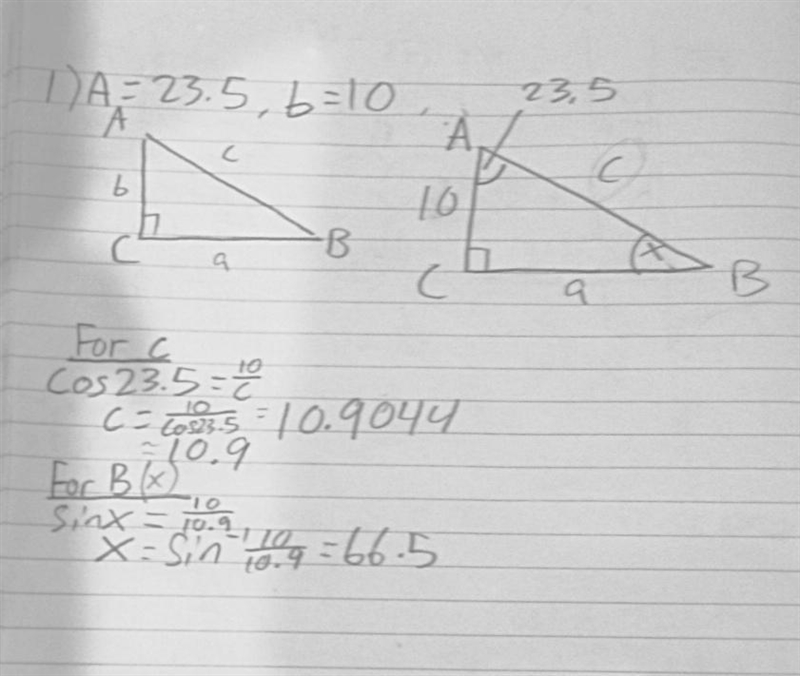 1) A = 23.5, b = 10,
23.5
A
c
b
C
a
B
A
c
10
C
a
x
B
For c
cos 23.5 = 10/c
c = 10/cos23.5 = 10.9044
= 10.9
For B(x)
sinx = 10/10.9
x = sin⁻¹ 10/10.9 = 66.5